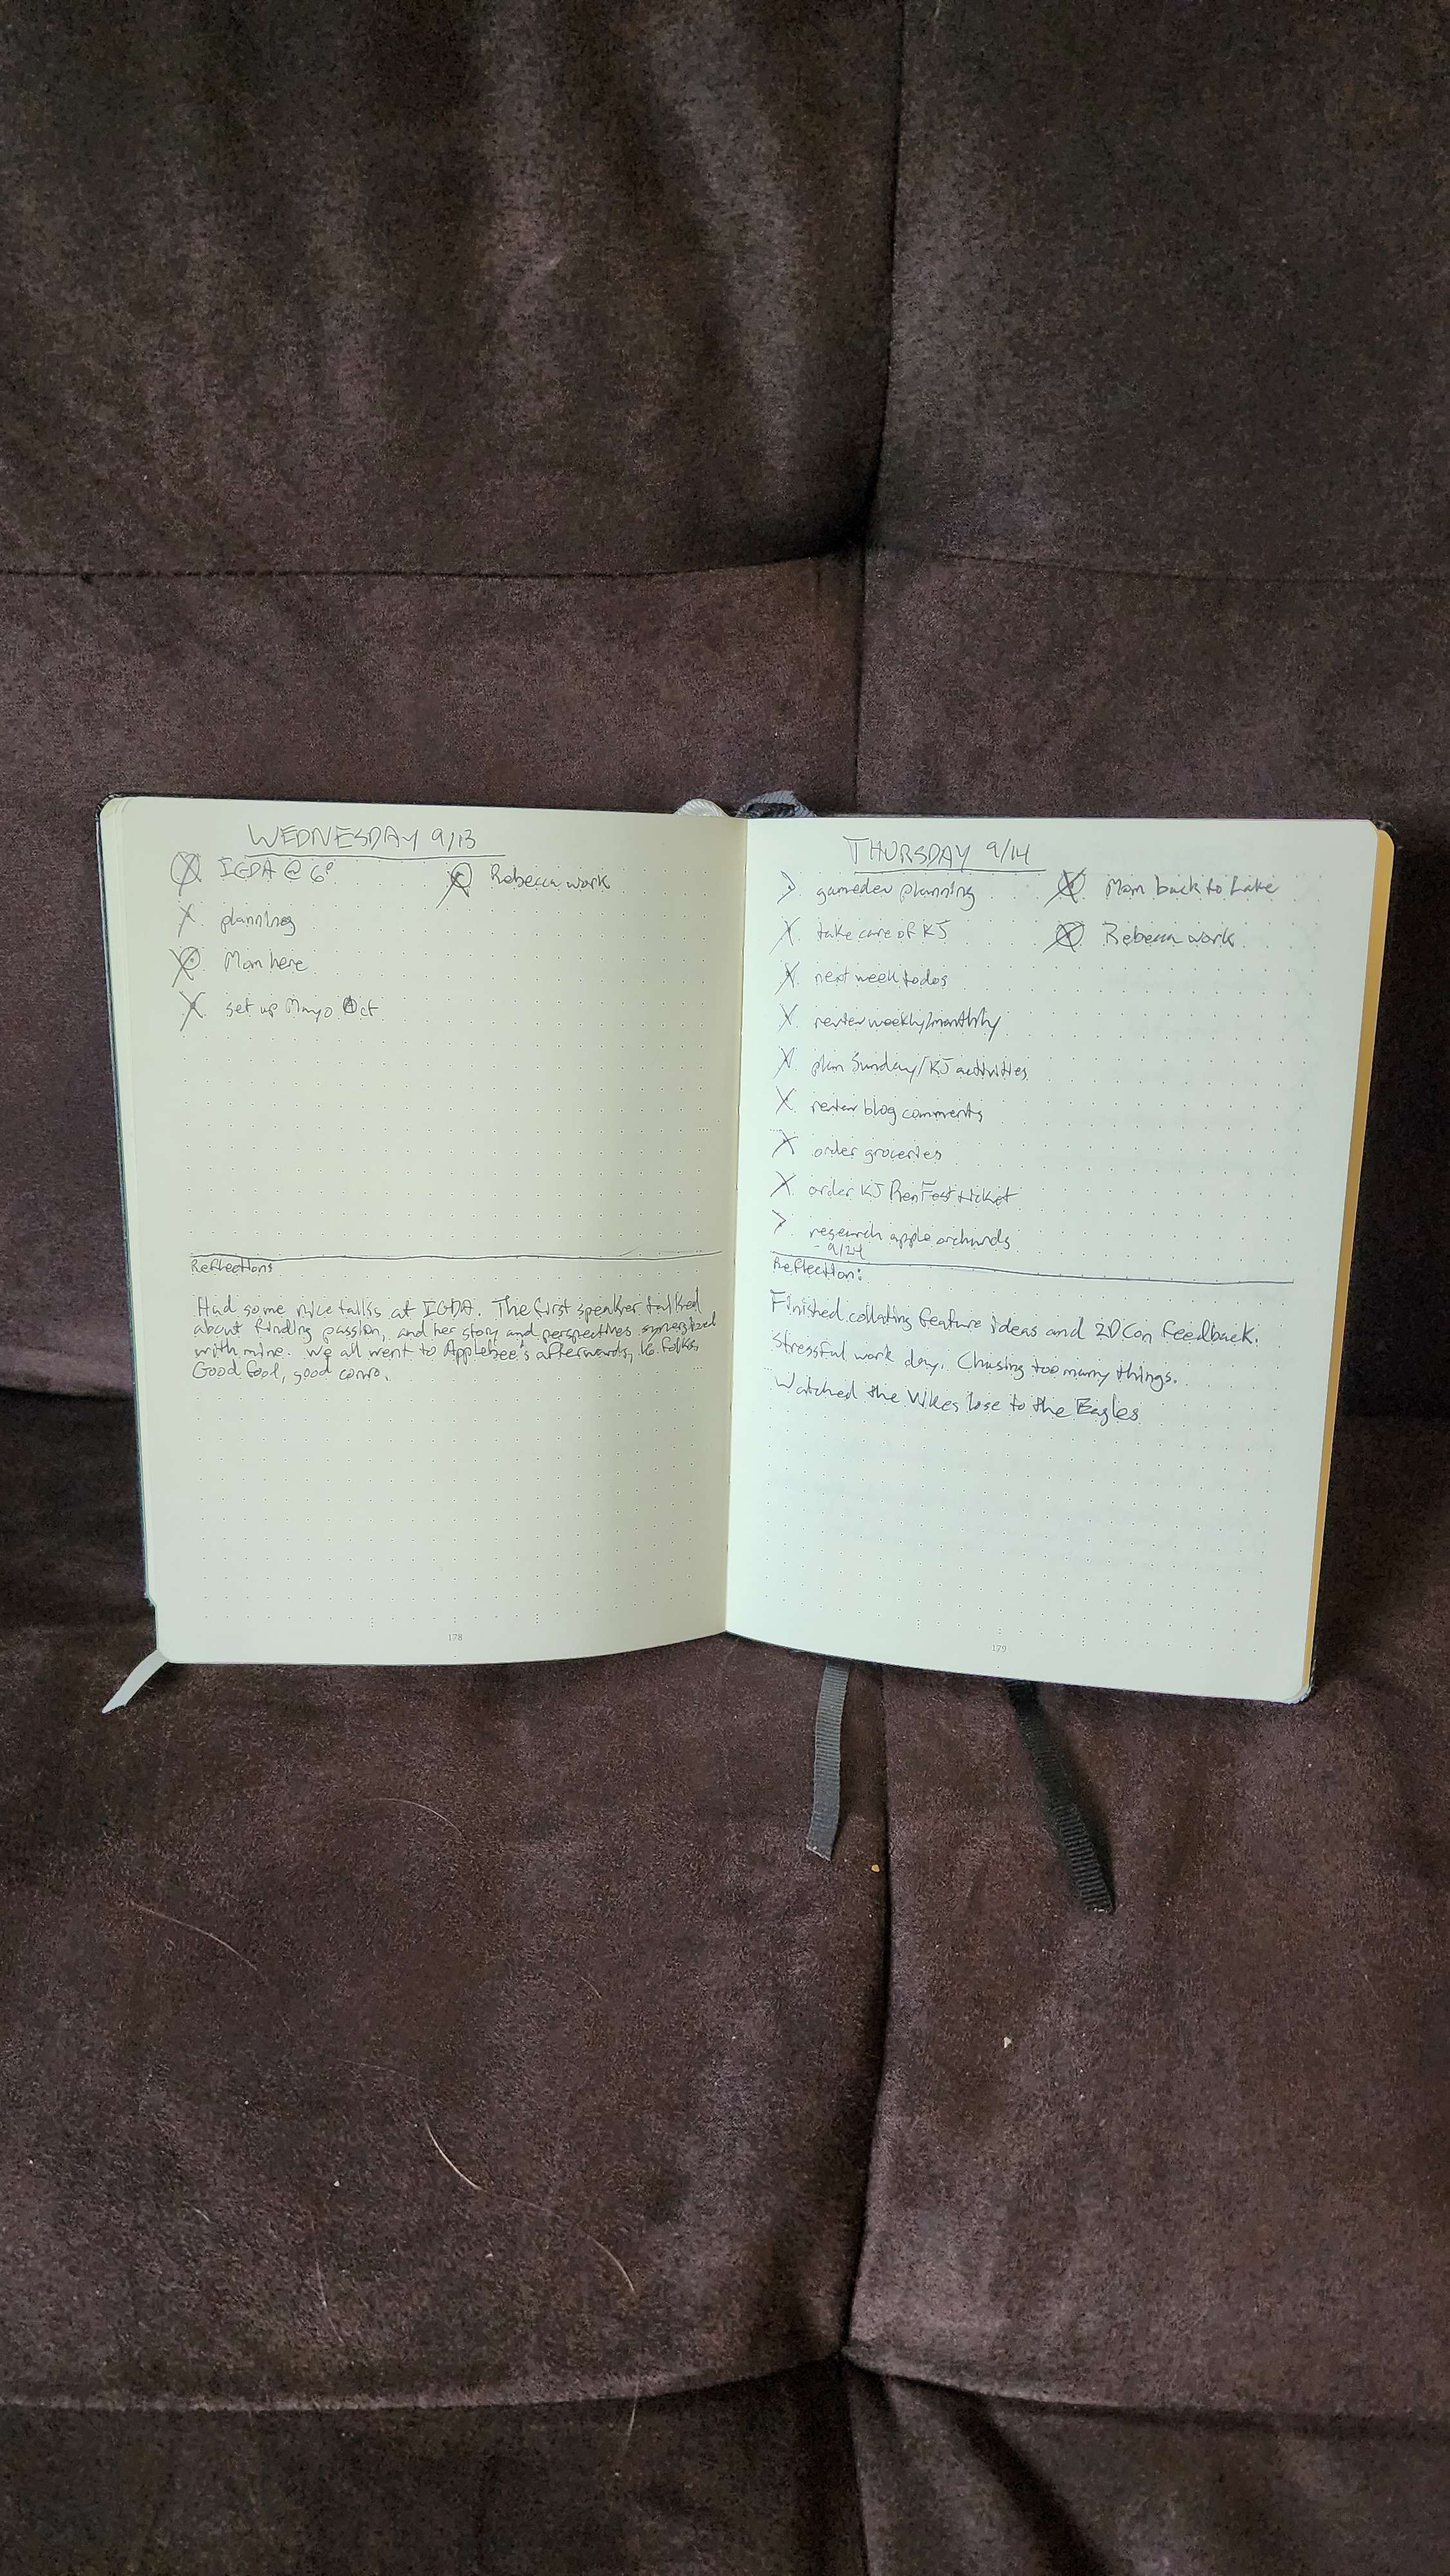 WEDNESDAY 9/13
IGDA @ 6⁰
Rebecca work
planning
Mom here
set up Mayo Oct
Reflections
Had some nice talks at IGDA. The first speaker talked
about finding passion, and her story and perspectives synergized
with mine. We all went to Applebee's afterwards, 16 folks.
Good food, good convo.
178
THURSDAY 9/14
> gamedev planning
Mom back to Lake
X take care of KJ
Rebecca work
X next week todos
X review weekly/monthly
X plan Sunday/KJ activities
X review blog comments
X order groceries
X order KJ RenFest ticket
> research apple orchards
- 9/24
Reflection:
Finished collating feature ideas and 2DCon feedback.
Stressful work day. Chasing too many things.
Watched the Vikes lose to the Eagles
179